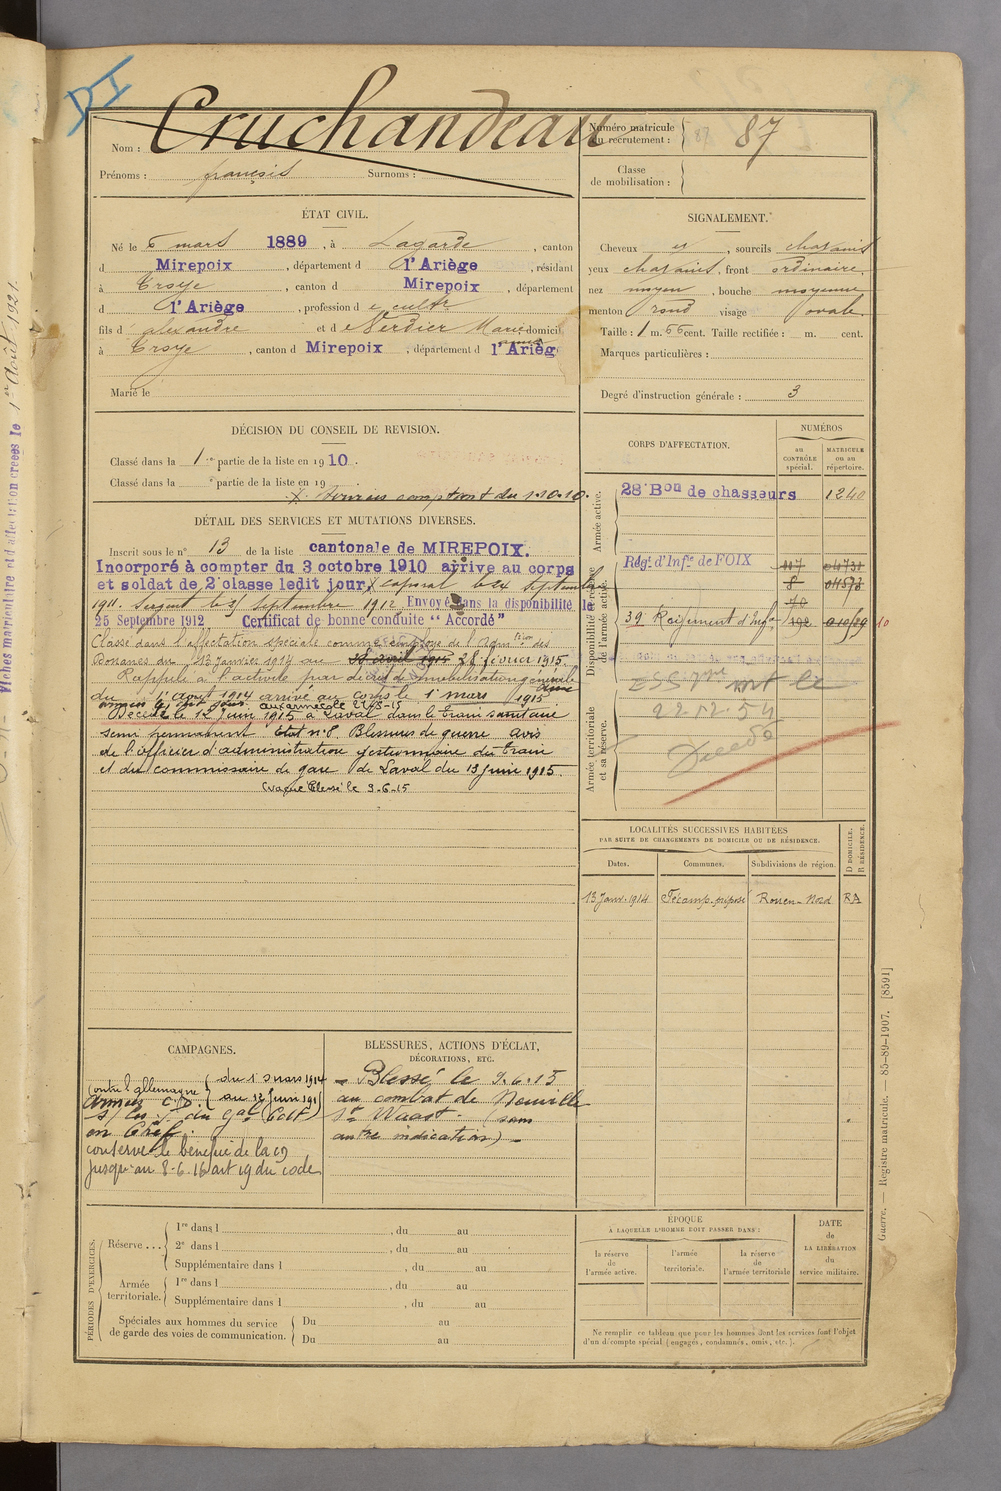 DI
Nom : Cruchandeau
Prénoms : françois Surnoms :
Numéro matricule du recrutement : 87
Classe de mobilisation :
ÉTAT CIVIL.
Né le 6 mars 1889, à Lagarde, canton
d Mirepoix, département d l'Ariège, résidant
à Troye, canton d Mirepoix, département
d l'Ariège, profession d e cultr
fils d' alexandre et d e Verdier Marie domicil
à Troye, canton d Mirepoix, département d l'Arièg
Marié le
SIGNALEMENT.
Cheveux et, sourcils chatains
yeux chatains, front ordinaire
nez moyen, bouche moyenne
menton rond visage ovale
Taille : 1 m. 66 cent. Taille rectifiée : m. cent.
Marques particulières :
Degré d'instruction générale : 3
DÉCISION DU CONSEIL DE REVISION.
Classé dans la 1re partie de la liste en 1910.
Classé dans la e partie de la liste en 19
X. Services comptant du 1-10-10.
DÉTAIL DES SERVICES ET MUTATIONS DIVERSES.
Inscrit sous le n° 13 de la liste cantonale de MIREPOIX.
Incorporé à compter du 3 octobre 1910 arrivé au corps
et soldat de 2e classe ledit jour, X caporal le 24 Septembre
1911. Sergent le 25 Septembre 1912 Envoyé dans la disponibilité le
25 Septembre 1912 Certificat de bonne conduite "Accordé"
Classé dans l'affectation spéciale comme employé de l'Admtion des
Douanes du 13 Janvier 1914 au 28 février 1915.
Rappelé à l'activité par décret de mobilisation générale
du 1er aout 1914 arrivé au corps le 1er mars 1915
aux armées le 21-5-15
Décédé le 12 Juin 1915 à Laval dans le train sanitaire
semi permanent Etat n°8. Blessures de guerre avis
de l'officier d'administration gestionnaire du train
et du commissaire de gare de Laval du 13 Juin 1915
Blessé le 9-6-15
CORPS D'AFFECTATION.
NUMÉROS
au CONTRÔLE spécial.
MATRICULE ou au répertoire.
Armée active.
28e Bon de chasseurs 1240
Disponibilité et réserve de l'armée active.
Régt d'Infie de FOIX 117 04731
8 011573
39 Régiment d'Infie
Armée territoriale et sa réserve.
22-12-54
LOCALITÉS SUCCESSIVES HABITÉES
PAR SUITE DE CHANGEMENTS DE DOMICILE OU DE RÉSIDENCE.
Dates. Communes. Subdivisions de région. D DOMICILE, R RÉSIDENCE.
13 Janv. 1914 Fécamp. préposé Rouen-Nord RA
CAMPAGNES.
Contre l'allemagne du 1er mars 1914
au 12 Juin 1915
conserve le bénéfice de la
jusqu'au 8-6-16 art 19 du code
BLESSURES, ACTIONS D'ÉCLAT,
DÉCORATIONS, ETC.
- Blessé le 9.6.15
au combat de Neuville
St Waast - (sans
autre indication) -
PÉRIODES D'EXERCICES.
Réserve ... 1re dans l , du au
2e dans l , du au
Supplémentaire dans l , du au
Armée territoriale. 1re dans l , du au
Supplémentaire dans l , du au
Spéciales aux hommes du service de garde des voies de communication. Du au
Du au
ÉPOQUE
À LAQUELLE L'HOMME DOIT PASSER DANS :
la réserve de l'armée active.
l'armée territoriale.
la réserve de l'armée territoriale
DATE de LA LIBÉRATION du service militaire.
Ne remplir ce tableau que pour les hommes dont les services font l'objet
d'un décompte spécial (engagés, condamnés, omis, etc.).
Guerre. — Registre matricule. — 85-89-1907. [8591]
1er Août 1921.